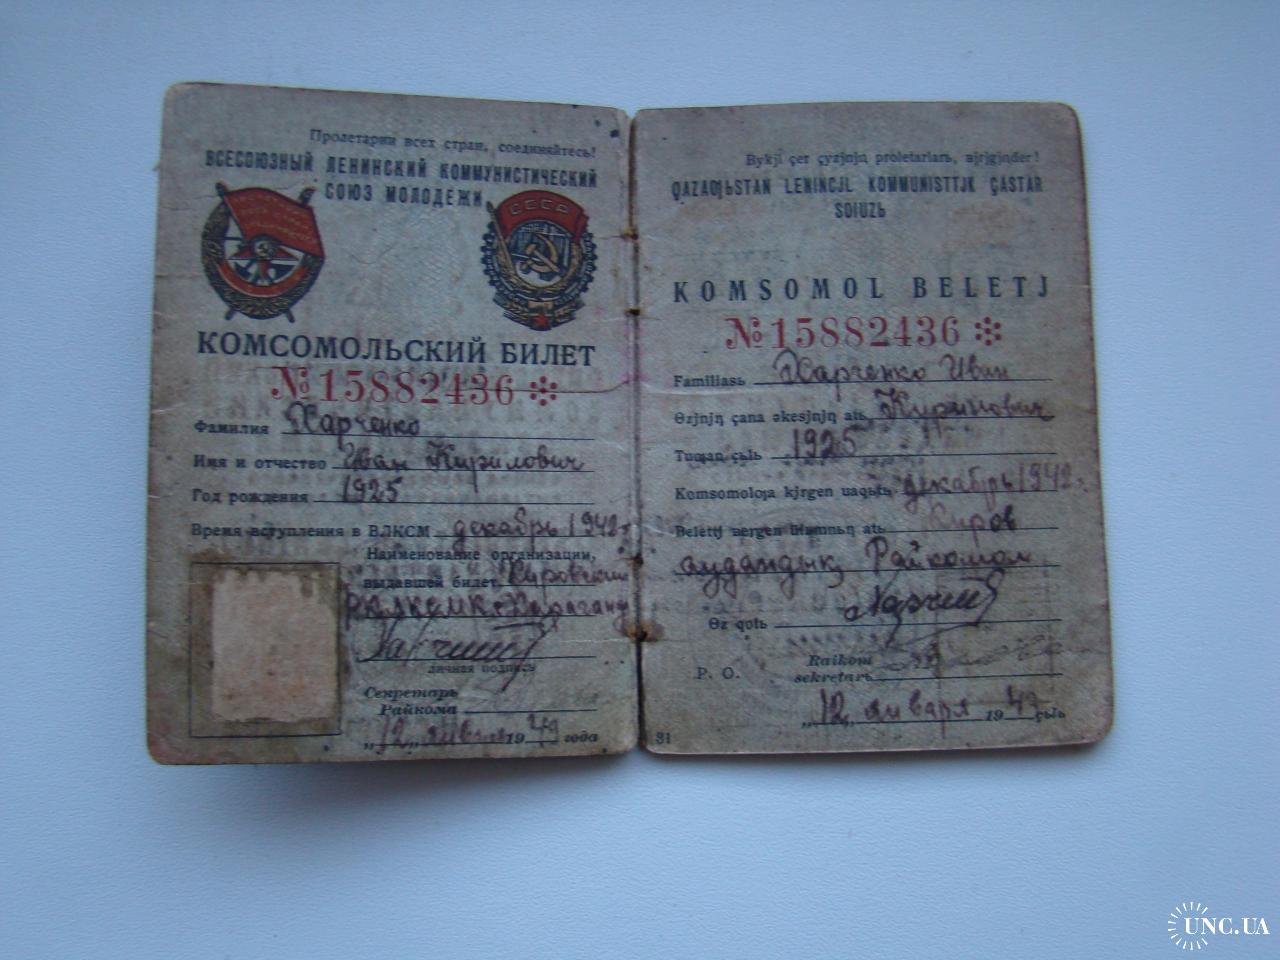 Пролетарии всех стран, соединяйтесь!
ВСЕСОЮЗНЫЙ ЛЕНИНСКИЙ КОММУНИСТИЧЕСКИЙ
СОЮЗ МОЛОДЕЖИ
СССР
КОМСОМОЛЬСКИЙ БИЛЕТ
№15882436
Фамилия Харченко
Имя и отчество Иван Кирилович
Год рождения 1925
Время вступления в ВЛКСМ декабрь 1942 г.
Наименование организации,
выдавшей билет Кировским
личная подпись
Секретарь
Райкома
„12„ января 1943 года
Bykjl çer çyzjnjꞑ proletarlarь, вjrjgiꞑder!
QAZAQЬSTAN LENINCJL KOMMUNISTTJK ÇASTAR
SOIUZЬ
KOMSOMOL BELETJ
№15882436
Familiasь Харченко Иван
Өzjnjꞑ çana əkesjnjꞑ atь Кирилович
Tuƣan çьlь 1925
Komsomolƣa kjrgen uaqьtь декабрь 1942 г.
Beletti вergen ьꞑ atь Киров
аудандық Райкомол
Өz qolь
P. O.
Raikom
sekretarь
„12„ января 1943 çьlь
31
UNC.UA